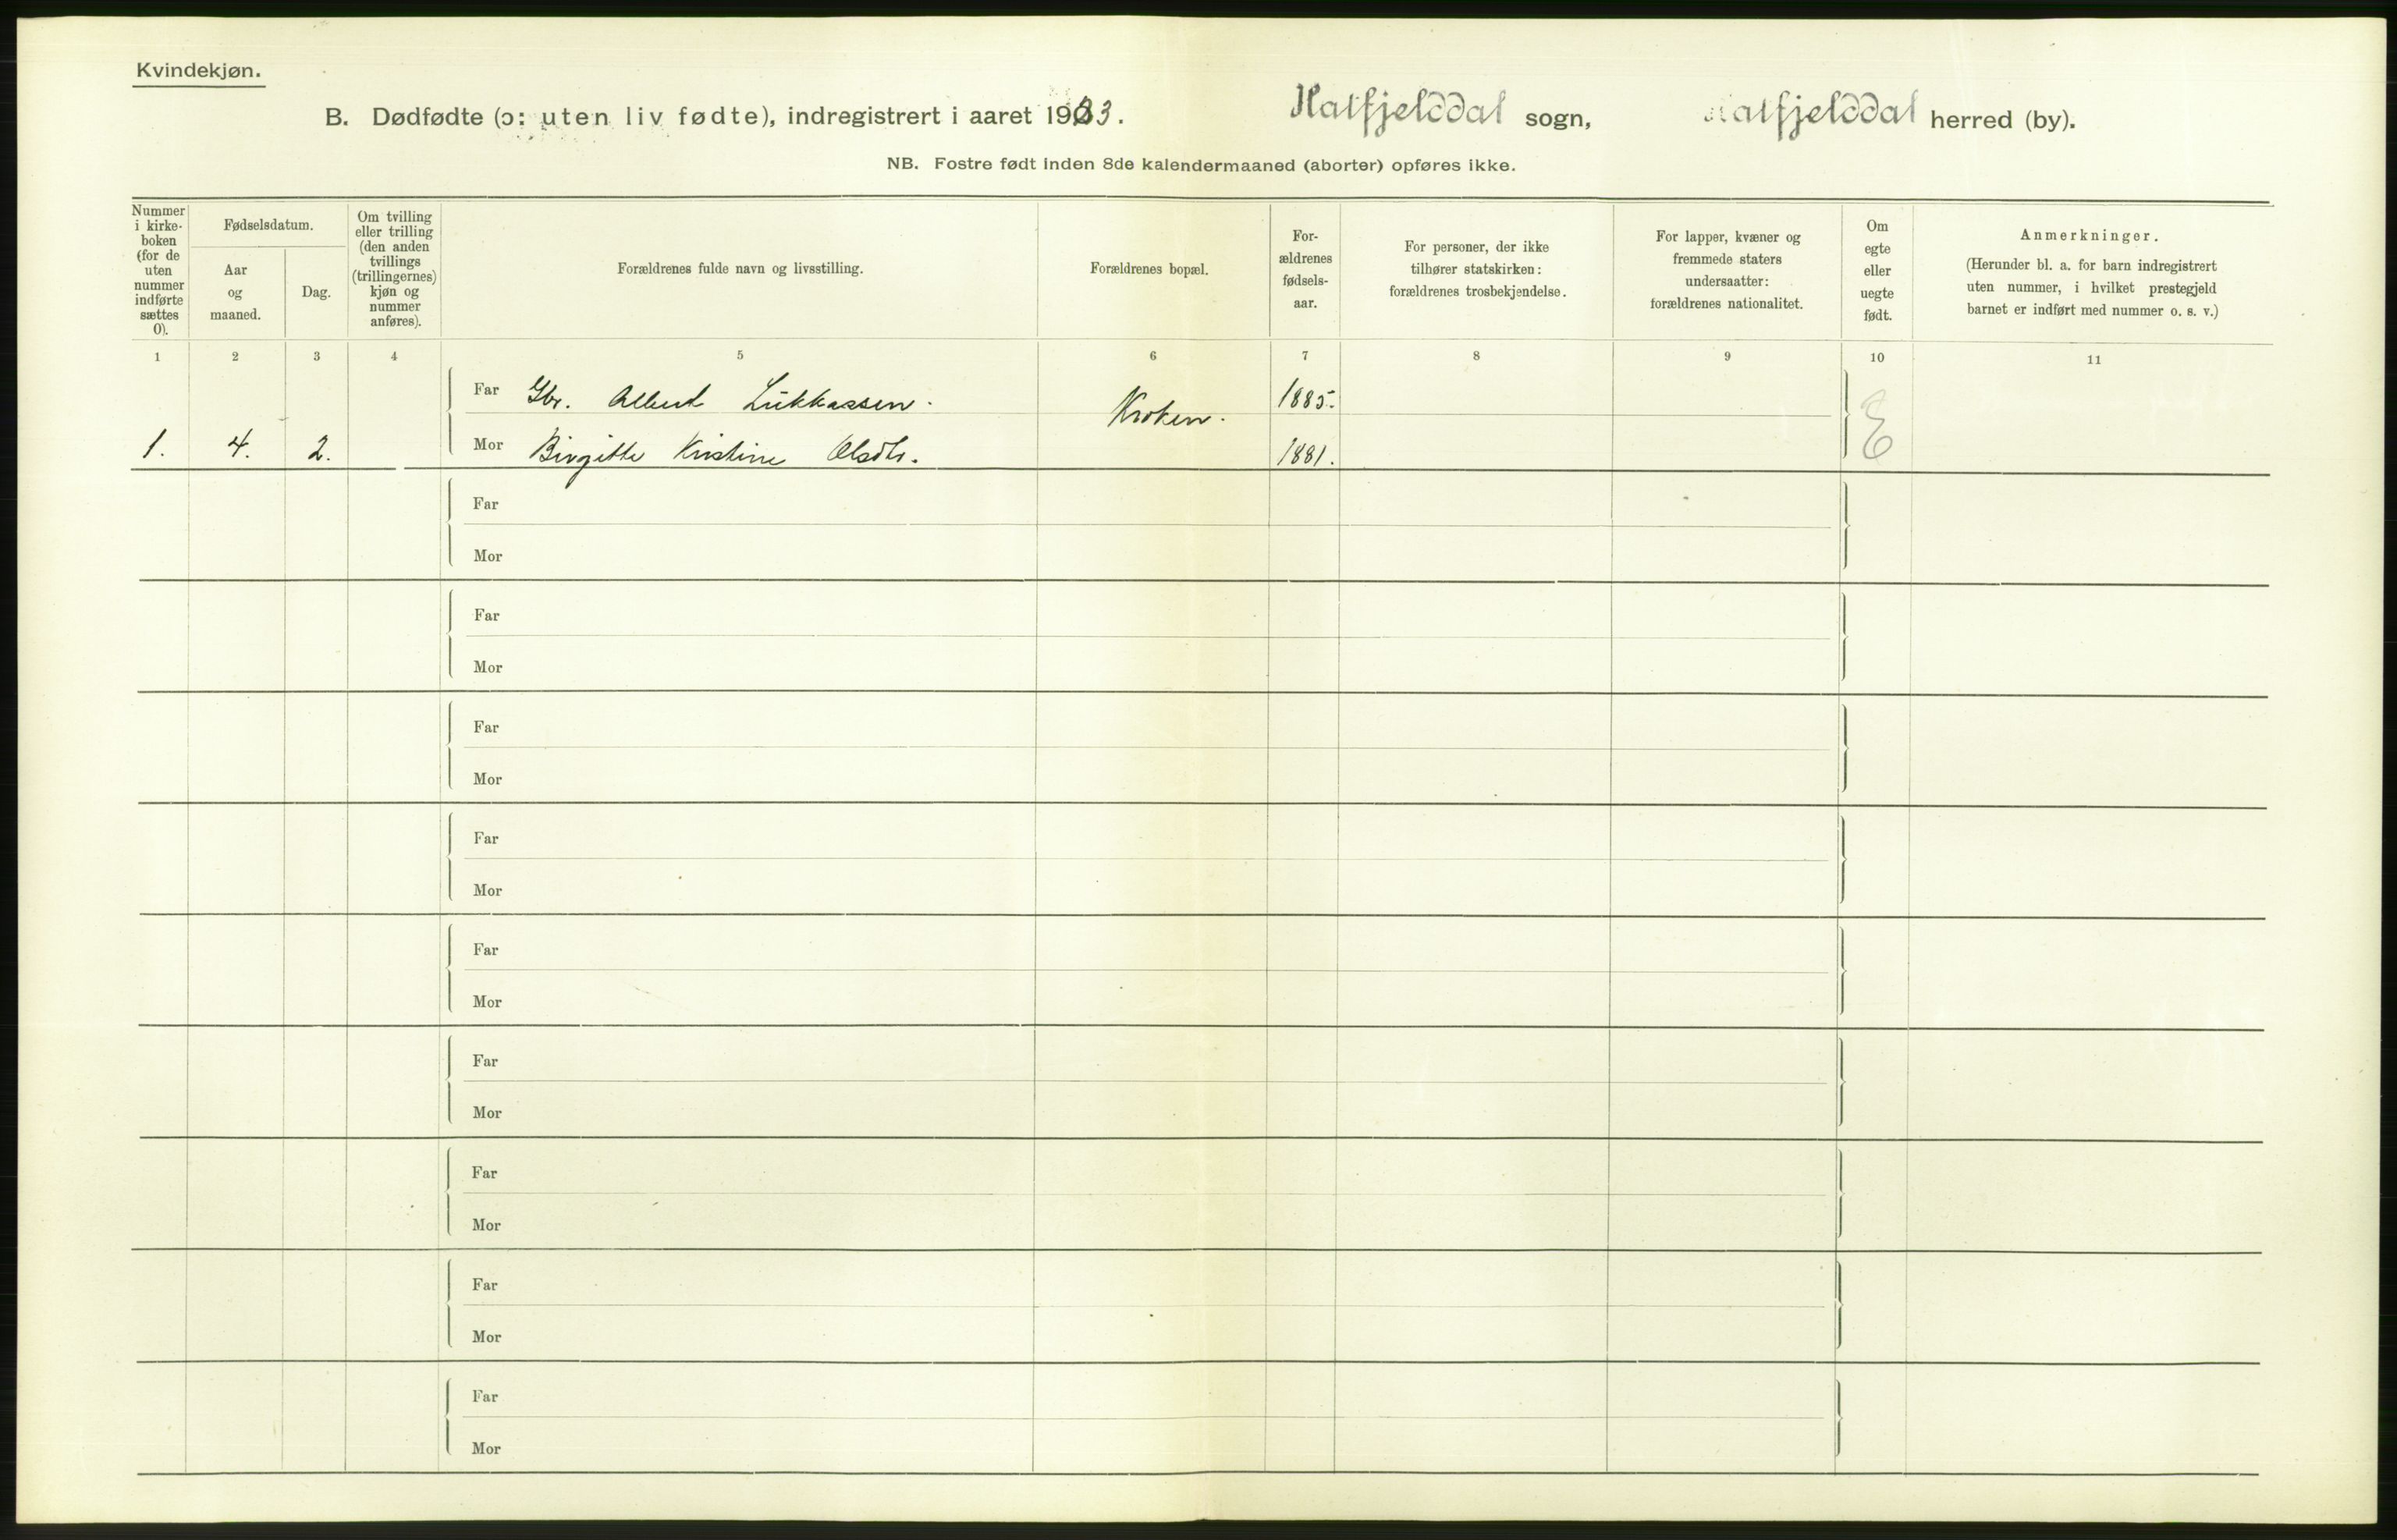 Kvindekjøn.
B. Dødfødte (ɔ: uten liv fødte), indregistrert i aaret 1913.
Hatfjelddal sogn, Hatfjelddal herred (by).
NB. Fostre født inden 8de kalendermaaned (aborter) opføres ikke.
Nummer
i kirke-
boken
(for de
uten
nummer
indførte
sættes
0).
Fødselsdatum.
Aar
og
maaned.
Dag.
Om tvilling
eller trilling
(den anden
tvillings
(trillingernes)
kjøn og
nummer
anføres).
Forældrenes fulde navn og livsstilling.
Forældrenes bopæl.
For-
ældrenes
fødsels-
aar.
For personer, der ikke
tilhører statskirken:
forældrenes trosbekjendelse.
For lapper, kvæner og
fremmede staters
undersaatter:
forældrenes nationalitet.
Om
egte
eller
uegte
født.
Anmerkninger.
(Herunder bl. a. for barn indregistrert
uten nummer, i hvilket prestegjeld
barnet er indført med nummer o. s. v.)
1 2 3 4 5 6 7 8 9 10 11
Far Gbr. Albert Lukkassen. 1885.
Kroken. E
1. 4. 2. Mor Birgitte Kristine Olsdtr. 1881.
Far
Mor
Far
Mor
Far
Mor
Far
Mor
Far
Mor
Far
Mor
Far
Mor
Far
Mor
Far
Mor